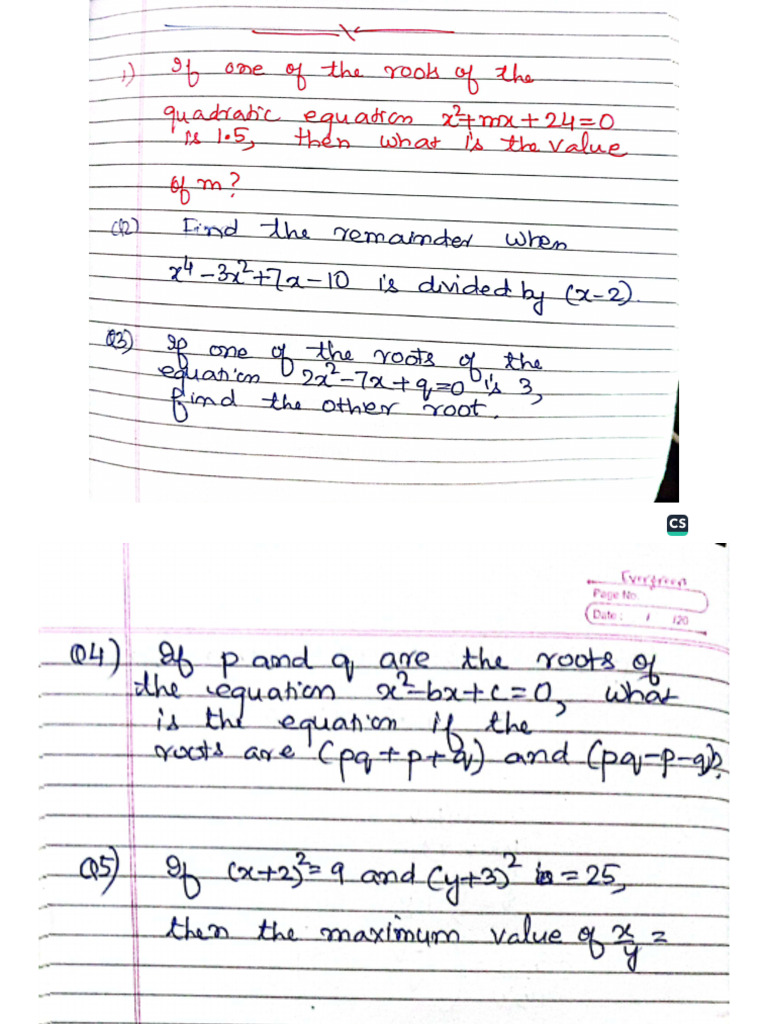 1) If one of the roots of the
quadratic equation x²+mx+24=0
is 1.5, then what is the value
of m?
Q2) Find the remainder when
x⁴-3x²+7x-10 is divided by (x-2).
Q3) If one of the roots of the
equation 2x²-7x+q=0 is 3,
find the other root.
CS
Evergreen
Page No.
Date: / /20
Q4) If p and q are the roots of
the equation x²-bx+c=0, what
is the equation if the
roots are (pq+p+q) and (pq-p-q)?
Q5) If (x+2)²=9 and (y+3)² = 25,
then the maximum value of x/y =